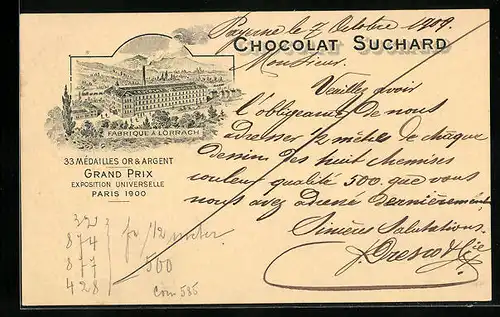 Payerne le 7 Octobre 1908.
CHOCOLAT SUCHARD
Monsieur.
Veuillez avoir
l'obligeance de nous
adresser 1/2 mètre de chaque
dessin des huit chemises
couleur qualité 500. que vous
nous avez adressé dernièrement
Sincères Salutations.
& Cie
FABRIQUE À LÖRRACH
33 MÉDAILLES OR & ARGENT
GRAND PRIX
EXPOSITION UNIVERSELLE
PARIS 1900
874
877
428
1/2 meter
500
585